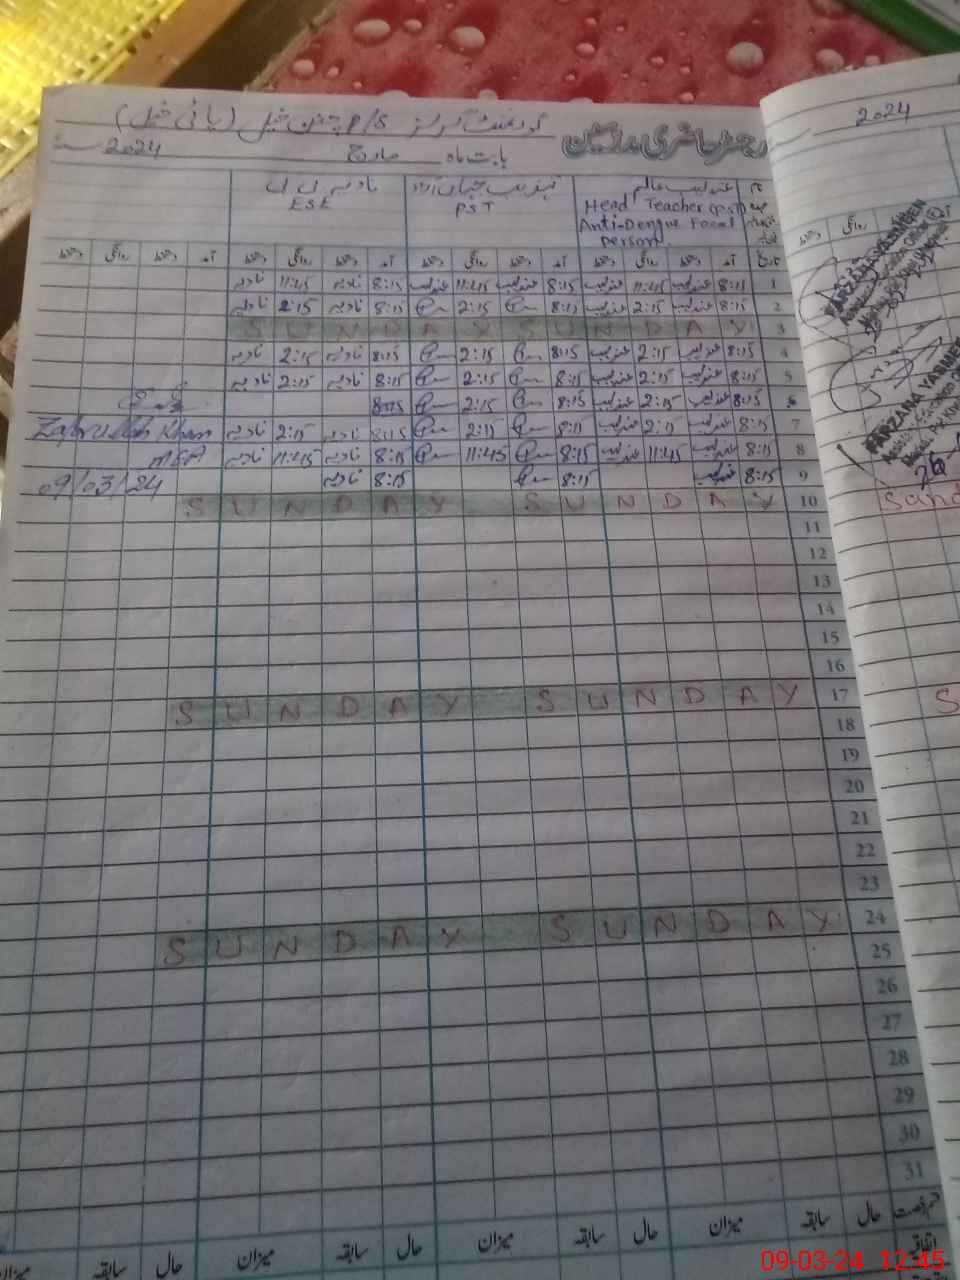 رجسٹر حاضری مدرسین
گورنمنٹ گرلز P/S چنن خیل (پائی خیل)
بابت ماہ مارچ 2024
عندلیب عالم
Head Teacher (PST)
Anti-Dengue Focal
Person
PST
نادیہ بی بی
ESE
تاریخ آمد دستخط روانگی دستخط آمد دستخط روانگی دستخط آمد دستخط روانگی دستخط آمد دستخط روانگی دستخط
1 8:15 عندلیب 11:45 عندلیب 8:15 11:45 8:15 نادیہ 11:45 نادیہ
2 8:15 عندلیب 2:15 عندلیب 8:15 2:15 8:15 نادیہ 2:15 نادیہ
3 SUNDAY SUNDAY
4 8:15 عندلیب 2:15 عندلیب 8:15 2:15 8:15 نادیہ 2:15 نادیہ
5 8:15 عندلیب 2:15 عندلیب 8:15 2:15 8:15 نادیہ 2:15 نادیہ
6 8:15 عندلیب 2:15 عندلیب 8:15 2:15 8:15
7 8:15 عندلیب 2:15 عندلیب 8:15 2:15 8:15 نادیہ 2:15 نادیہ
Zafrullah Khan
8 8:15 عندلیب 11:45 عندلیب 8:15 11:45 8:15 نادیہ 11:45 نادیہ
MEA
9 8:15 عندلیب 8:15 8:15 نادیہ
09/03/24
10 SUNDAY SUNDAY
11
12
13
14
15
16
17 SUNDAY SUNDAY
18
19
20
21
22
23
24 SUNDAY SUNDAY
25
26
27
28
29
30
31
قسم رخصت حال سابقہ میزان حال سابقہ میزان حال سابقہ میزان حال سابقہ میزان
اتفاقیہ
2024
روانگی دستخط
FARZANA YASMEEN
FARZANA YASMEEN
26-
Sand
S
09-03-24 12:45